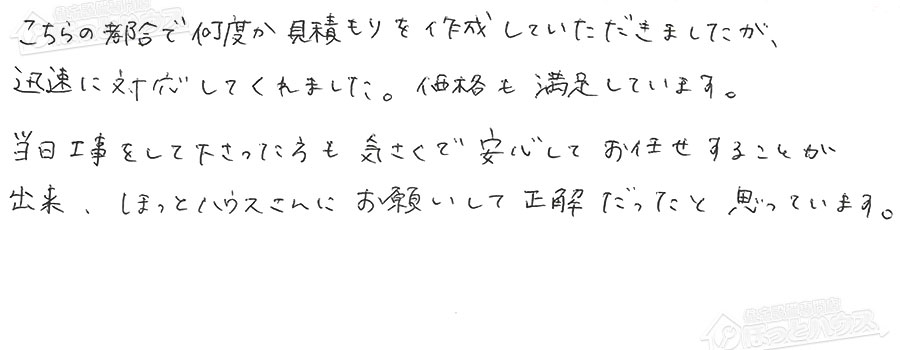 こちらの都合で何度か見積もりを作成していただきましたが、
迅速に対応してくれました。価格も満足しています。
当日工事をして下さった方も気さくで安心してお任せすることが
出来、ほっとハウスさんにお願いして正解だったと思っています。
住宅設備専門店
ほっとハウス